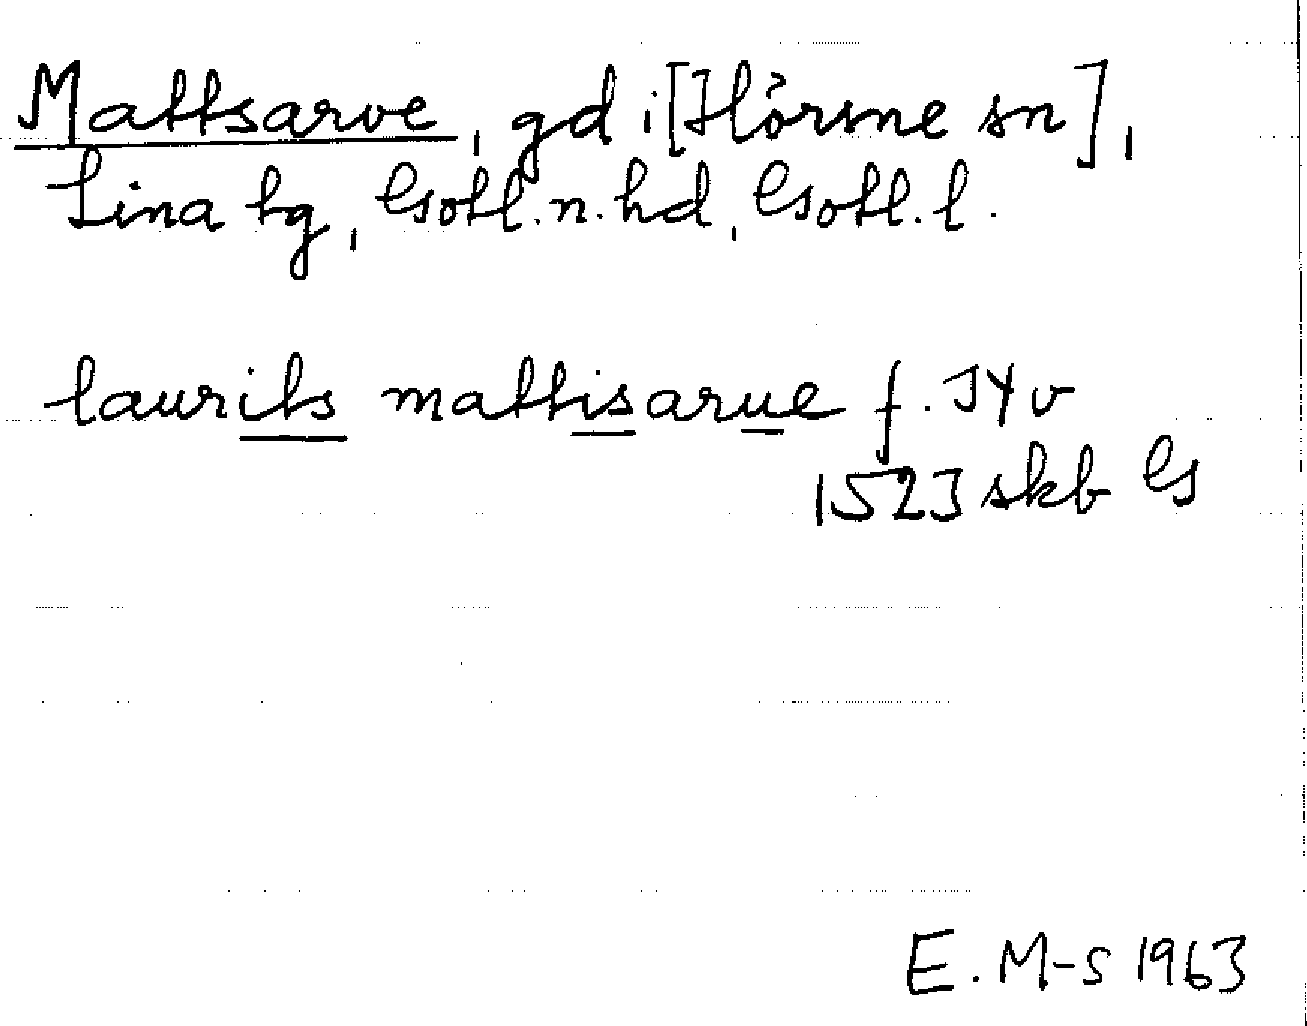 Mattsarve, gd i [Hörsne sn],
Lina tg, Gotl. n. hd, Gotl. l.
laurits mattisarue f. 34 v
1523 skb G
E. M-s 1963